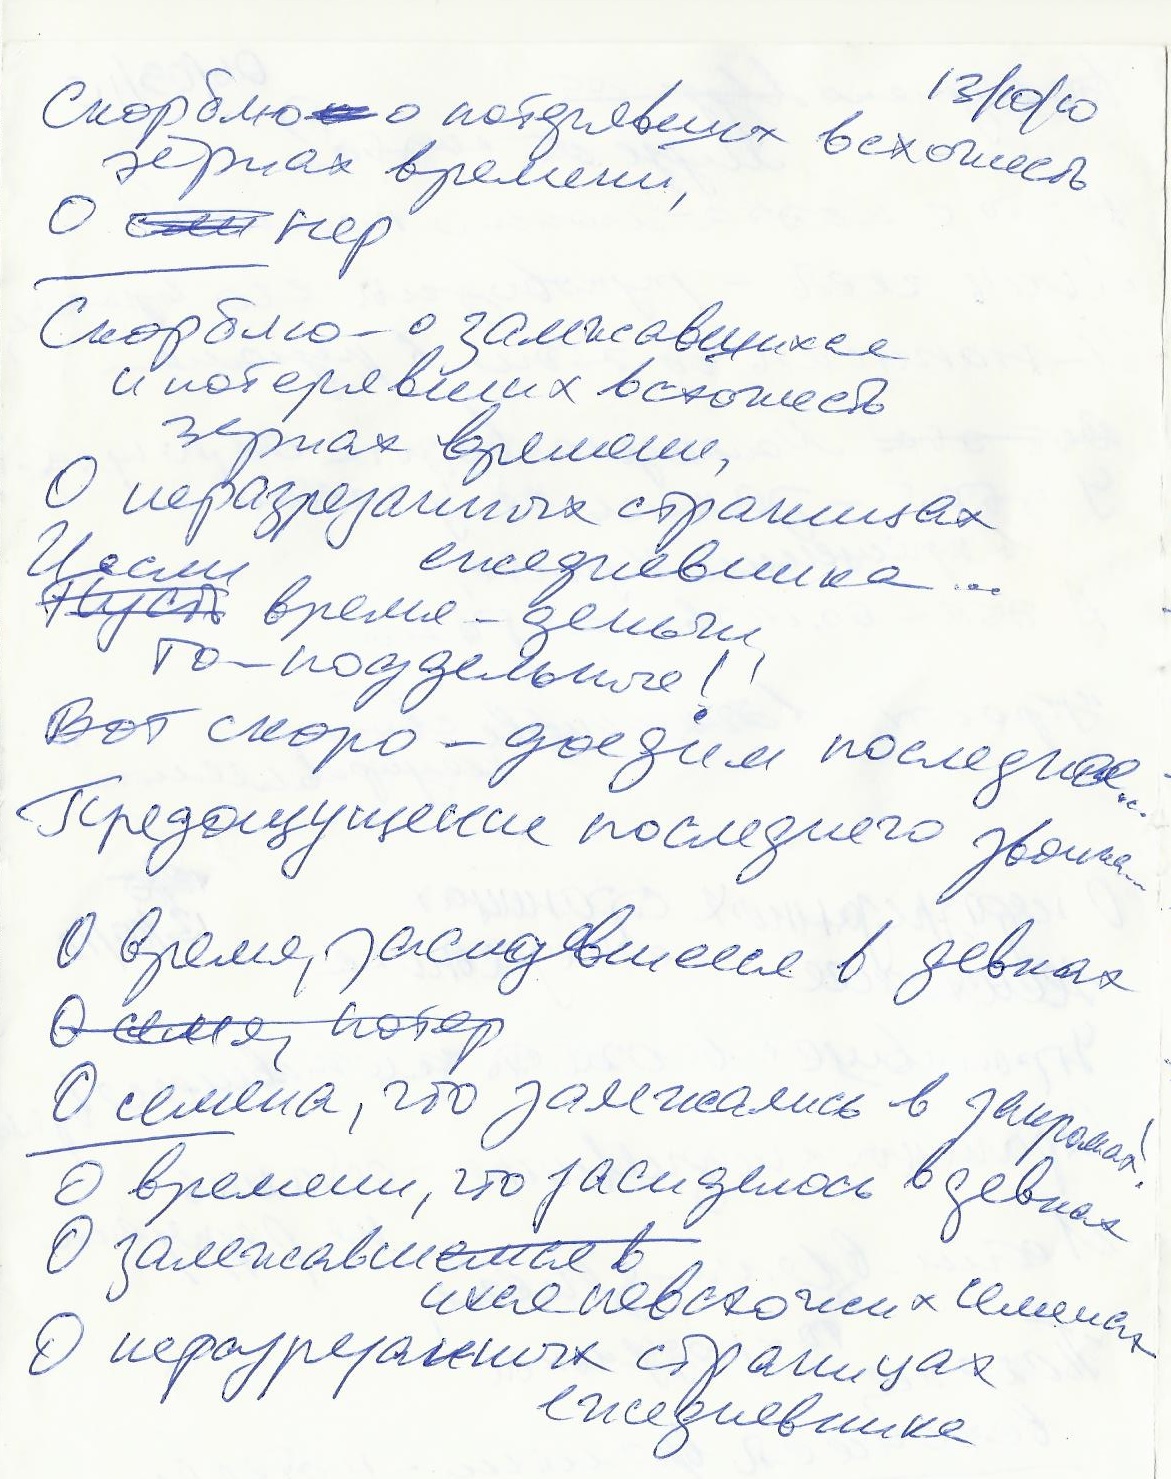 13/10/10
Скорблю о потерявших всхожесть
зёрнах времени,
О сем нер
Скорблю – о залежавшихся
и потерявших всхожесть
зернах времени,
О неразрезанных страницах
ежедневника...
И если
Пусть время – деньги,
То – поддельные!!
Вот скоро – доедим последнее...
Предощущение последнего звонка...
О время, засидевшееся в девках
О семя, потер
О семена, что залежались в закромах!
О времени, что засиделось в девках
О залежавшемся в
ихся невсхожих семенах
О неразрезанных страницах
ежедневника